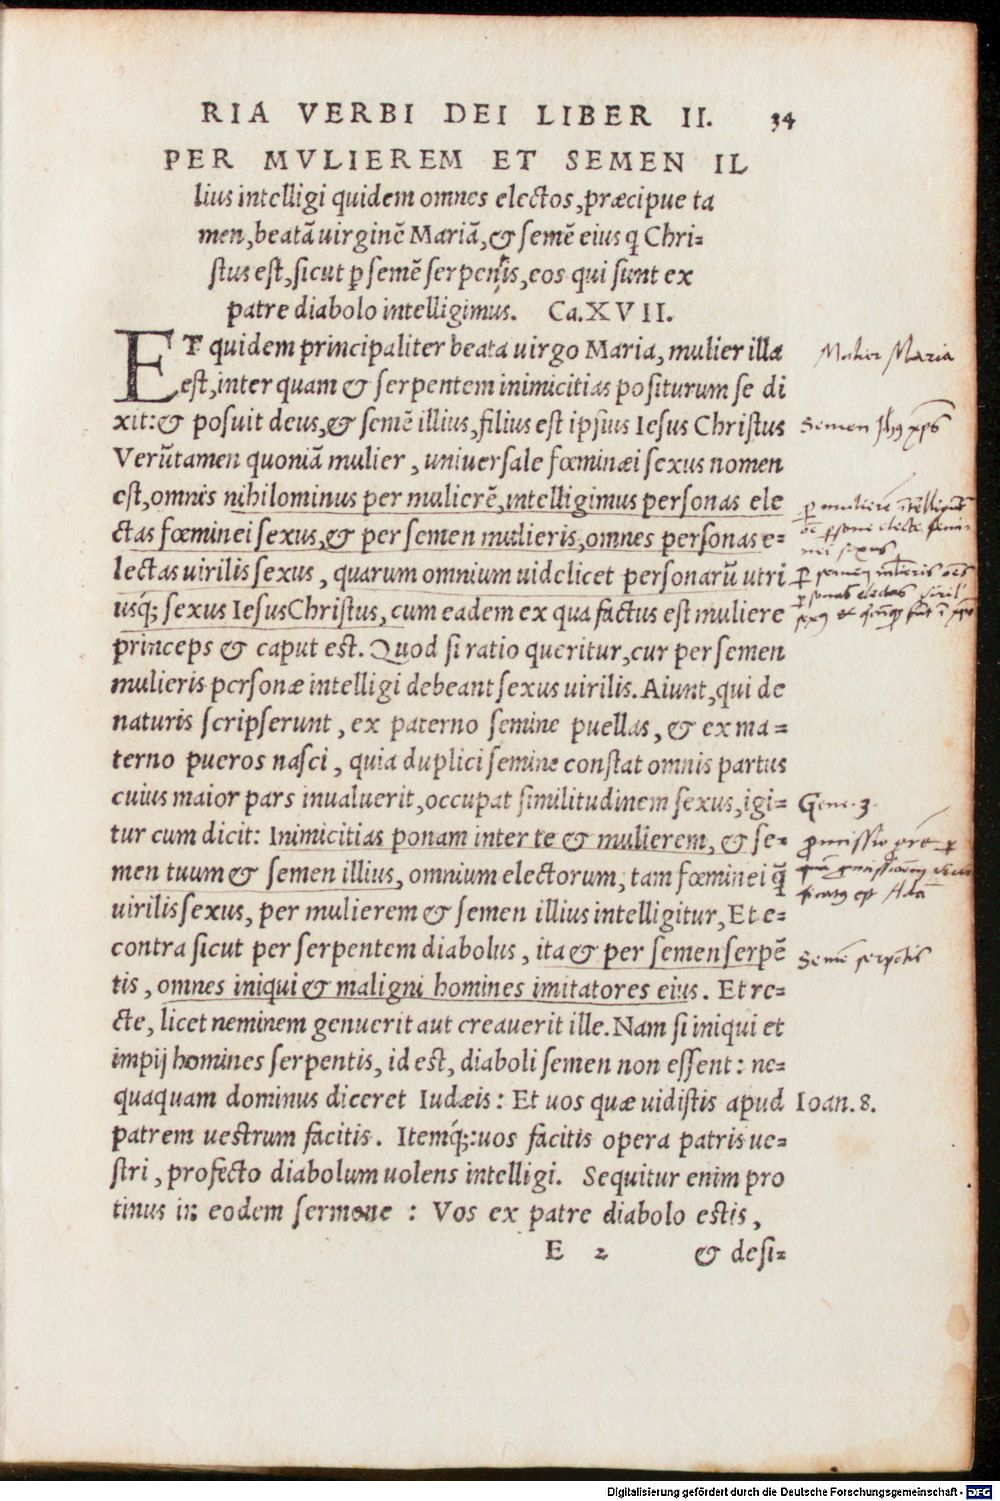 RIA VERBI DEI LIBER II. 34
PER MVLIEREM ET SEMEN IL
lius intelligi quidem omnes electos, præcipue ta
men, beatā uirginē Mariā, & semē eius q Chri-
stus est, sicut ꝑ semē serpentis, eos qui sunt ex
patre diabolo intelligimus. Ca. XVII.
ET quidem principaliter beata uirgo Maria, mulier illa
est, inter quam & serpentem inimicitias positurum se di
xit: & posuit deus, & semē illius, filius est ipsius Iesus Christus
Verūtamen quoniā mulier, uniuersale fœminæi sexus nomen
est, omnis nihilominus per mulierē, intelligimus personas ele
ctas fœminei sexus, & per semen mulieris, omnes personas e-
lectas uirilis sexus, quarum omnium uidelicet personarū utri
usq́; sexus Iesus Christus, cum eadem ex qua factus est muliere
princeps & caput est. Quod si ratio queritur, cur per semen
mulieris personæ intelligi debeant sexus uirilis. Aiunt, qui de
naturis scripserunt, ex paterno semine puellas, & ex ma-
terno pueros nasci, quia duplici semine constat omnis partus
cuius maior pars inualuerit, occupat similitudinem sexus, igi-
tur cum dicit: Inimicitias ponam inter te & mulierem, & se-
men tuum & semen illius, omnium electorum, tam fœminei q̄
uirilis sexus, per mulierem & semen illius intelligitur, Et e-
contra sicut per serpentem diabolus, ita & per semen serpē
tis, omnes iniqui & maligni homines imitatores eius. Et re-
cte, licet neminem genuerit aut creauerit ille. Nam si iniqui et
impij homines serpentis, id est, diaboli semen non essent: ne-
quaquam dominus diceret Iudæis: Et uos quæ uidistis apud
patrem uestrum facitis. Itemq́;: uos facitis opera patris ue-
stri, profecto diabolum uolens intelligi. Sequitur enim pro
tinus in eodem sermone: Vos ex patre diabolo estis,
E 2 & desi-
Mulier Maria
Semen Ihs xps
ꝑ mulierē
ꝑ semen mulieris
Gene. 3.
Semē serpētis
Ioan. 8.
Digitalisierung gefördert durch die Deutsche Forschungsgemeinschaft - DFG